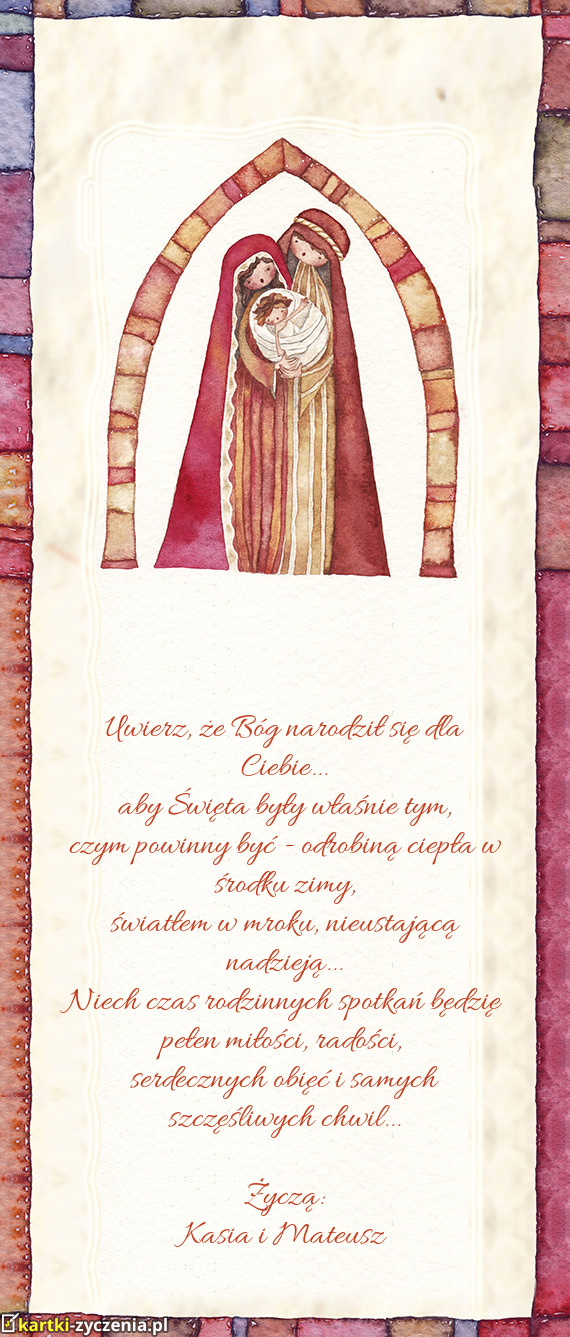 Uwierz, że Bóg narodził się dla
Ciebie...
aby Święta były właśnie tym,
czym powinny być - odrobiną ciepła w
środku zimy,
światłem w mroku, nieustającą
nadzieją...
Niech czas rodzinnych spotkań będzię
pełen miłości, radości,
serdecznych obięć i samych
szczęśliwych chwil...
Życzą:
Kasia i Mateusz
kartki-zyczenia.pl